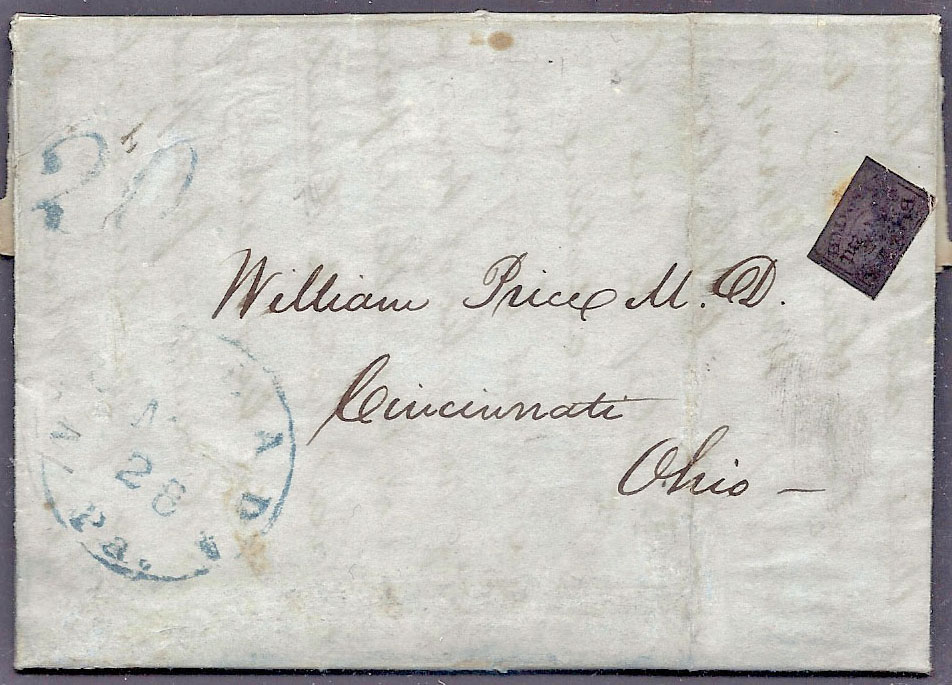 20
William Price M. D.
Cincinnati
Ohio –
28
Pa.